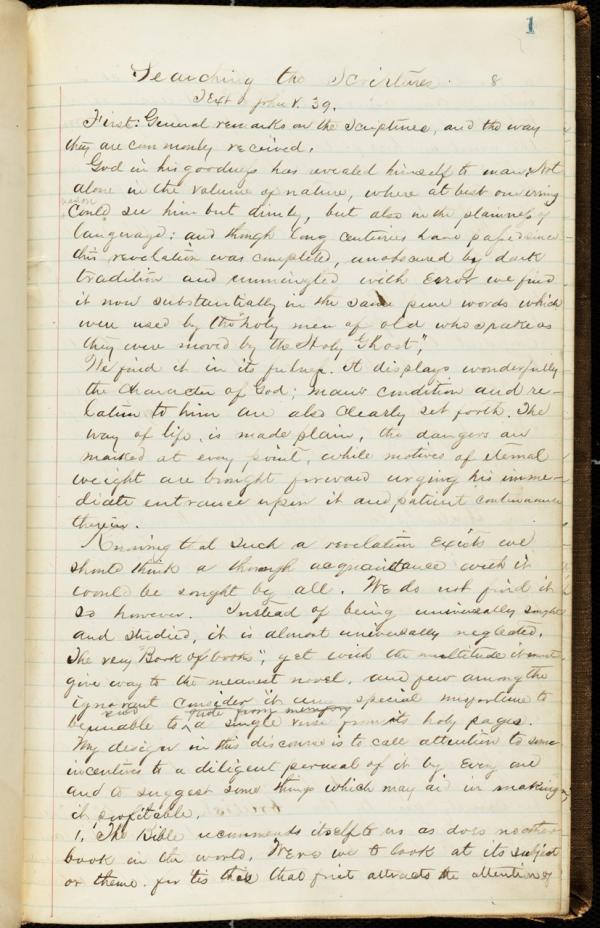 1
Searching the Scriptures. 8
Text John V. 39.
First: General remarks on the Scriptures, and the way
they are commonly received.
God in his goodness has revealed himself to man; Not
alone in the volume of nature, where at best our erring
reason
could see him but dimly, but also in the plainness of
language: and though long centuries have passed since
this revelation was completed, unobscured by dark
tradition and unmingled with Error we find
it now substantially in the same pure words which
were used by the "holy men of old who spake as
they were moved by the Holy Ghost",
We find it in its fulness. It displays wonderfully
the character of God; mans condition and re-
lation to him are also clearly set forth. The
way of life, is made plain, the dangers are
marked at every point, while motives of eternal
weight are brought forward urging his imme-
diate entrance upon it and patient continuance
therein.
Knowing that such a revelation Exists we
should think a through acquaintance with it
would be sought by all. We do not find it
so however. Instead of being universally sought
and studied, it is almost universally neglected.
The very "Book of books", yet with the multitude it must
give way to the nearest novel. and few among the
ignorant consider it any special misfortune to
quote from memory
be unable to a single verse from its holy pages.
My design in this discourse is to call attention to some
incentives to a diligent perusal of it by Every one
and to suggest some things which may aid in making
it profitable.
1, The Bible recommends itself to us as does no other
book in the world. Were we to look at its subject
or theme. for tis this that first attracts the attention of